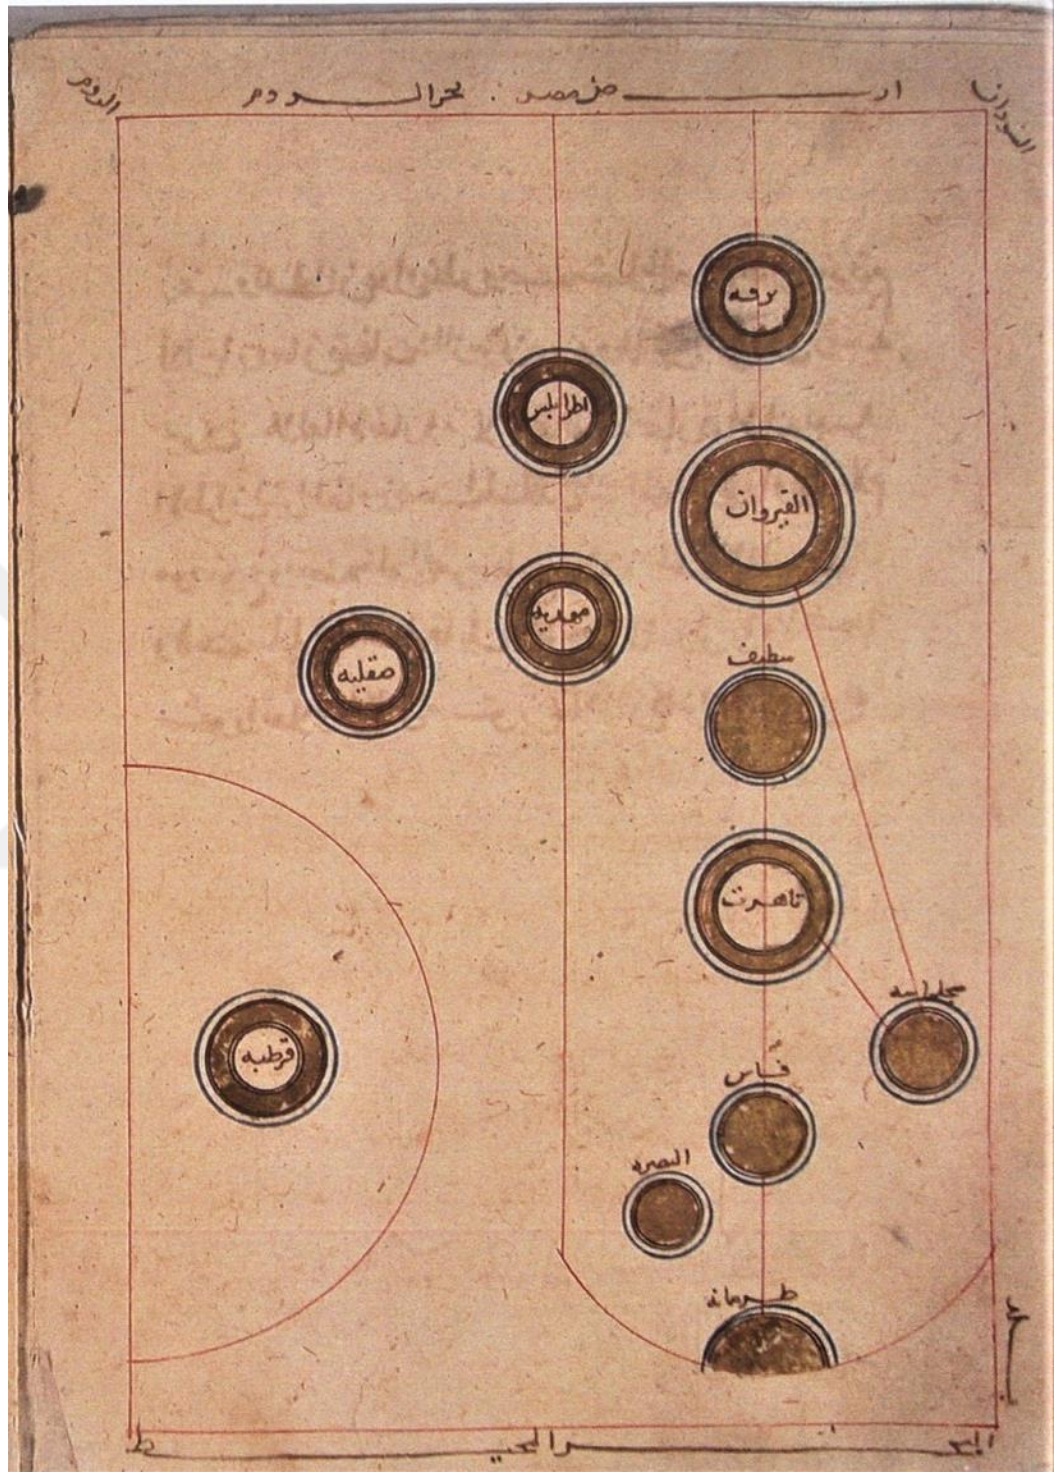 السودان
ارض مصر : بحر الروم
الروم
برقه
اطرابلس
القيروان
مهديه
صقليه
سطيف
تاهرت
سجلماسه
قرطبه
فاس
البصره
طنجانه
بلد
البحر المحيط